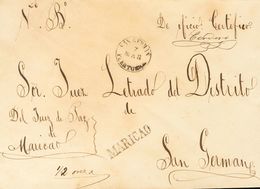 De oficio Certifico
MAR
Sor. Juez Letrado del Distrito
Del Juz de Paz
de
Maricao
MARICAO
1/2 onza
San German